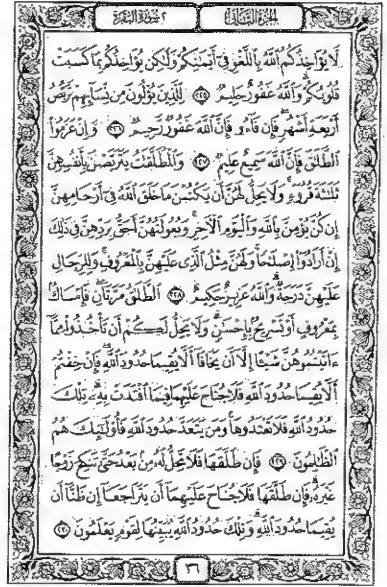 الجزء الثاني
٢ سورة البقرة
لَّا يُؤَاخِذُكُمُ ٱللَّهُ بِٱللَّغْوِ فِىٓ أَيْمَـٰنِكُمْ وَلَـٰكِن يُؤَاخِذُكُم بِمَا كَسَبَتْ
قُلُوبُكُمْ وَٱللَّهُ غَفُورٌ حَلِيمٌ ٢٢٥ لِّلَّذِينَ يُؤْلُونَ مِن نِّسَآئِهِمْ تَرَبُّصُ
أَرْبَعَةِ أَشْهُرٍ فَإِن فَآءُو فَإِنَّ ٱللَّهَ غَفُورٌ رَّحِيمٌ ٢٢٦ وَإِنْ عَزَمُوا۟
ٱلطَّلَـٰقَ فَإِنَّ ٱللَّهَ سَمِيعٌ عَلِيمٌ ٢٢٧ وَٱلْمُطَلَّقَـٰتُ يَتَرَبَّصْنَ بِأَنفُسِهِنَّ
ثَلَـٰثَةَ قُرُوٓءٍ وَلَا يَحِلُّ لَهُنَّ أَن يَكْتُمْنَ مَا خَلَقَ ٱللَّهُ فِىٓ أَرْحَامِهِنَّ
إِن كُنَّ يُؤْمِنَّ بِٱللَّهِ وَٱلْيَوْمِ ٱلْـَٔاخِرِ وَبُعُولَتُهُنَّ أَحَقُّ بِرَدِّهِنَّ فِى ذَٰلِكَ
إِنْ أَرَادُوٓا۟ إِصْلَـٰحًا وَلَهُنَّ مِثْلُ ٱلَّذِى عَلَيْهِنَّ بِٱلْمَعْرُوفِ وَلِلرِّجَالِ
عَلَيْهِنَّ دَرَجَةٌ وَٱللَّهُ عَزِيزٌ حَكِيمٌ ٢٢٨ ٱلطَّلَـٰقُ مَرَّتَانِ فَإِمْسَاكٌۢ
بِمَعْرُوفٍ أَوْ تَسْرِيحٌۢ بِإِحْسَـٰنٍ وَلَا يَحِلُّ لَكُمْ أَن تَأْخُذُوا۟ مِمَّآ
ءَاتَيْتُمُوهُنَّ شَيْـًٔا إِلَّآ أَن يَخَافَآ أَلَّا يُقِيمَا حُدُودَ ٱللَّهِ فَإِنْ خِفْتُمْ
أَلَّا يُقِيمَا حُدُودَ ٱللَّهِ فَلَا جُنَاحَ عَلَيْهِمَا فِيمَا ٱفْتَدَتْ بِهِۦ تِلْكَ
حُدُودُ ٱللَّهِ فَلَا تَعْتَدُوهَا وَمَن يَتَعَدَّ حُدُودَ ٱللَّهِ فَأُو۟لَـٰٓئِكَ هُمُ
ٱلظَّـٰلِمُونَ ٢٢٩ فَإِن طَلَّقَهَا فَلَا تَحِلُّ لَهُۥ مِنۢ بَعْدُ حَتَّىٰ تَنكِحَ زَوْجًا
غَيْرَهُۥ فَإِن طَلَّقَهَا فَلَا جُنَاحَ عَلَيْهِمَآ أَن يَتَرَاجَعَآ إِن ظَنَّآ أَن
يُقِيمَا حُدُودَ ٱللَّهِ وَتِلْكَ حُدُودُ ٱللَّهِ يُبَيِّنُهَا لِقَوْمٍ يَعْلَمُونَ ٢٣٠
٣٦